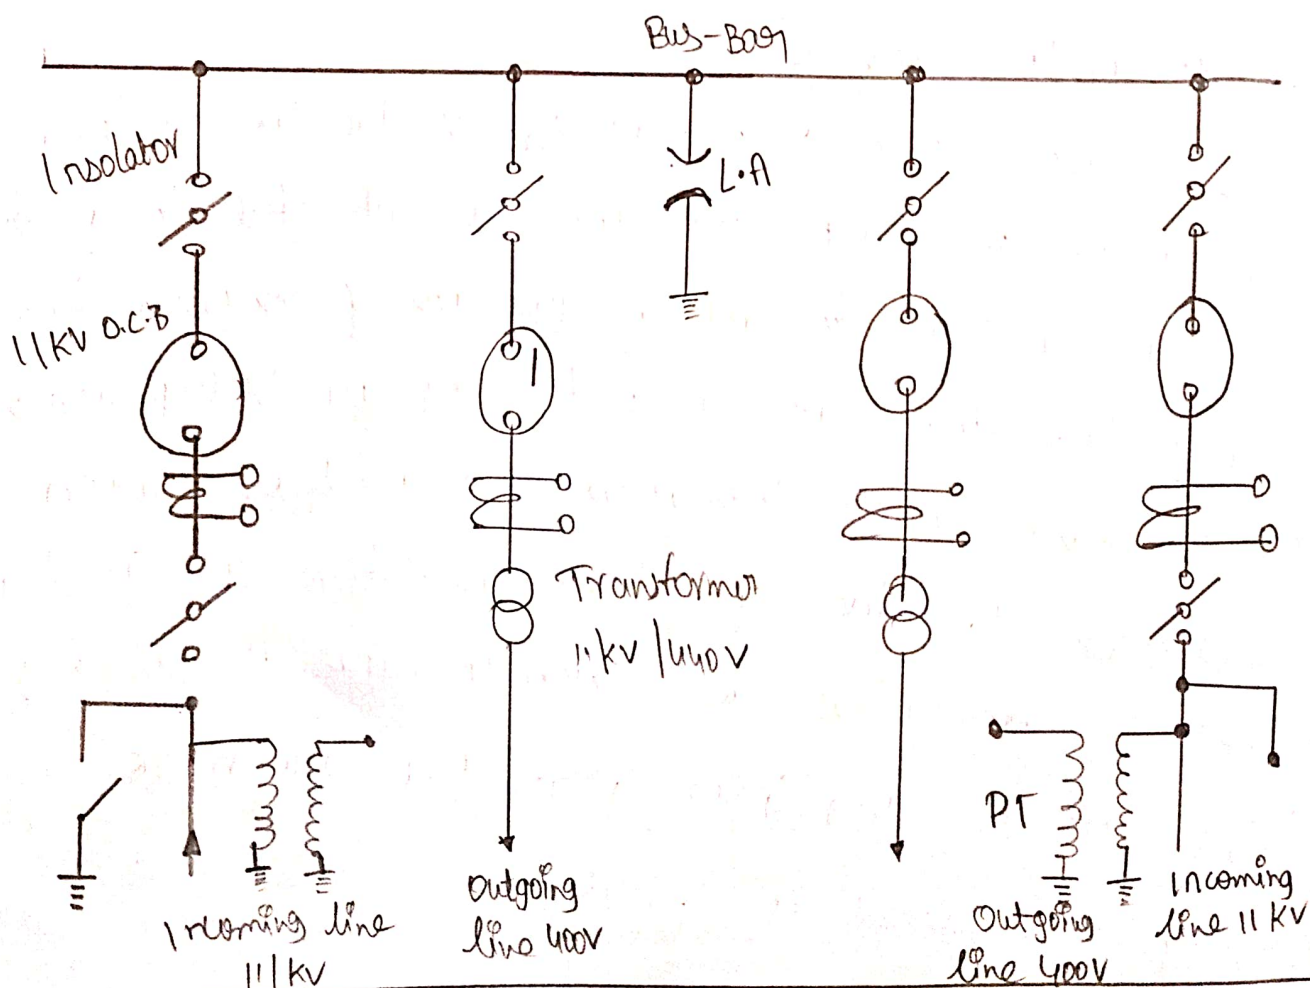 Bus-Bar
Insolator
L.A
11KV O.C.B
Transformer
11KV/440V
PT
Incoming line
11/KV
Outgoing
line 400V
Outgoing
line 400V
Incoming
line 11 KV